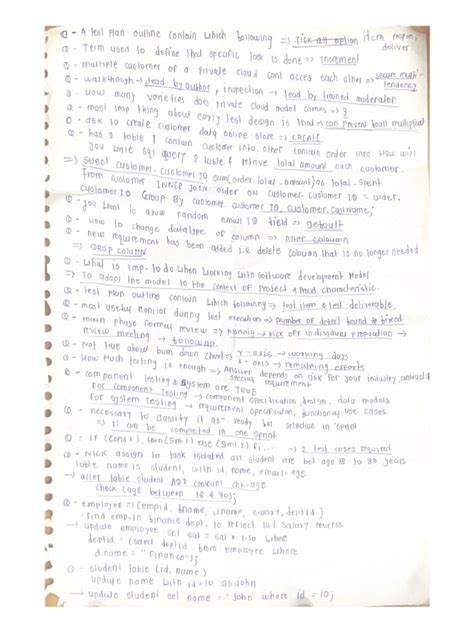 Q - A test plan outline contain which following => Tick all option item respon, deliver
Q - Term used to define that specific task is done => increment
Q - multiple customer of a private cloud can access each other => secure multi-tendency
Q - walkthrough -> lead by author, inspection -> lead by trained moderator
Q - How many varieties does private cloud model comes => 3
Q - most imp thing about early test design is that => can prevent
Q - ask to create customer data online store => CREATE
Q - has 2 table 1 contain customer into. other contain order info. How will
you write sql query 2 table & retrive total amount each customer.
=> select customer. customer ID sum(order.total.
From customer INNER JOIN order ON customer. customer ID = order.
customer ID Group By customer. customer ID, customer.
Q - you want to allow random email ID field => default
Q - How to change datatype of column => alter coloumn
Q - new requirement has been added i.e delete coloumn that is no longer needed
=> DROP column
Q - What is imp. to do when working with software development Model
=> To adopt the model to the context of project & product characteristic.
Q - test plan outline contain which following => test item & test deliverable,
Q - most useful monitor during test execution => number of defect found & fixed
Q - main phase formal review => planning -> kick off to individual preparation ->
review meeting -> followup.
Q - Not true about burn down chart => x-axis -> working days
y-axis -> remaining efforts
Q - How Much testing is enough => Answer depends on risk for your industry, contract &
special requirement
Q - component testing & system are TRUE
For component Testing -> component specification, design, data models
For system Testing -> requirement specification, functionality, use cases.
Q - necessary to classify it as ready for selection in sprint
=> it can be completed in one sprint
Q : if (cond 1), then (sm 1) else (sm 2) fi ... => 2 test cases required
Q - Nick assign to task isolated all student are bet age 18 to 30 years
table name is student, with id, name, email, age
-> alter table student ADD
check (age between 18 & 30);
Q - employee => (empid, fname, lname, salary, deptid)
find emp. in finance dept. to reflect 10% salary
-> update employee set sal = sal * 1.10 where
deptid = (select deptid from employee where
dname = "finance");
Q - student table (id, name)
update name with id=10 as john
-> update student set name = 'john' where id = 10;